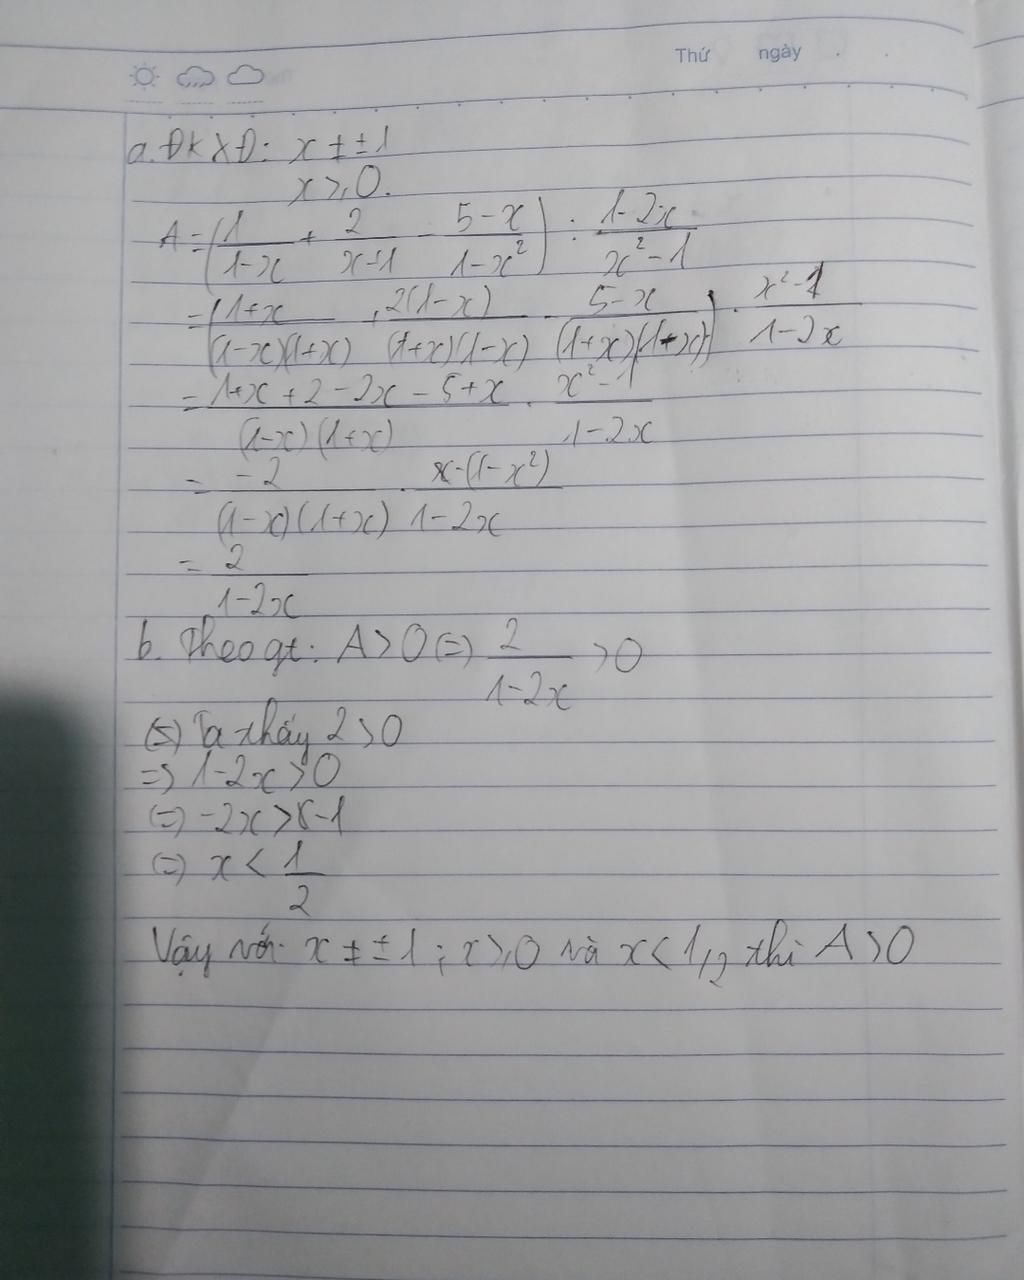 Thứ ngày
a. ĐKXĐ: x ≠ ±1
x ≥ 0.
A = (1/(1-x) + 2/(x+1) - (5-x)/(1-x²)) : (1-2x)/(x²-1)
= ((1+x)/((1-x)(1+x)) + 2(1-x)/((1+x)(1-x)) - (5-x)/((1+x)(1-x))) . (x²-1)/(1-2x)
= (1+x+2-2x-5+x)/((1-x)(1+x)) . (x²-1)/(1-2x)
= -2/((1-x)(1+x)) . -(1-x²)/(1-2x)
= 2/(1-2x)
b. Theo gt: A > 0 (=) 2/(1-2x) > 0
(=) Ta thấy 2 > 0
=> 1-2x > 0
(=) -2x > -1
(=) x < 1/2
Vậy với x ≠ ±1 ; x ≥ 0 và x < 1/2 thì A > 0